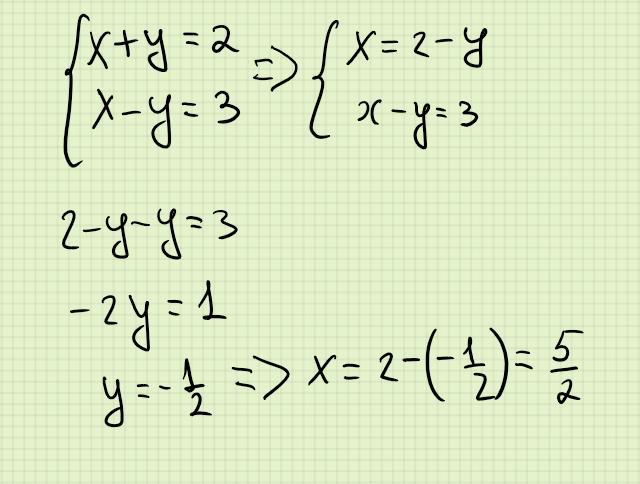 { x+y=2 => { x=2-y
x-y=3 x-y=3
2-y-y=3
-2y=1
y=-1/2 => x=2-(-1/2)=5/2